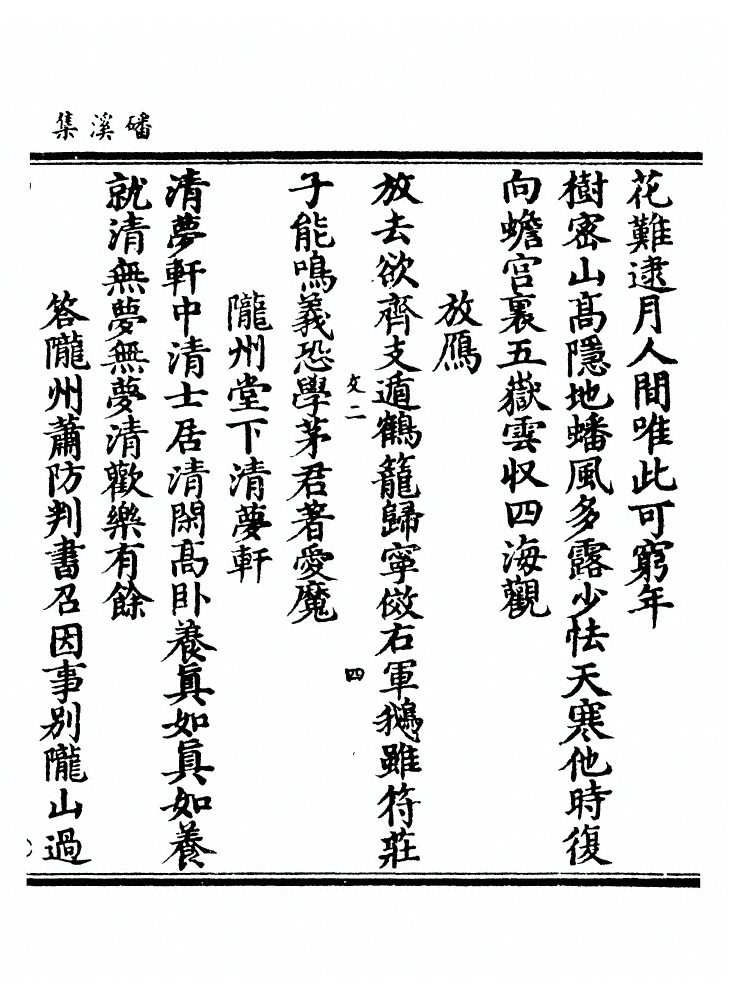 磻溪集
花難逮月人間唯此可窮年
樹密山高隱地蟠風多露少怯天寒他時復
向蟾宫裏五嶽雲収四海觀
放鴈
放去欲齊支遁鶴籠歸寧傚右軍鵝雖符莊
文二
四
子能鳴義恐學茅君著愛魔
隴州堂下清夢軒
清夢軒中清士居清閑高卧養真如真如養
就清無夢無夢清歡樂有餘
答隴州蕭防判書召因事别隴山過